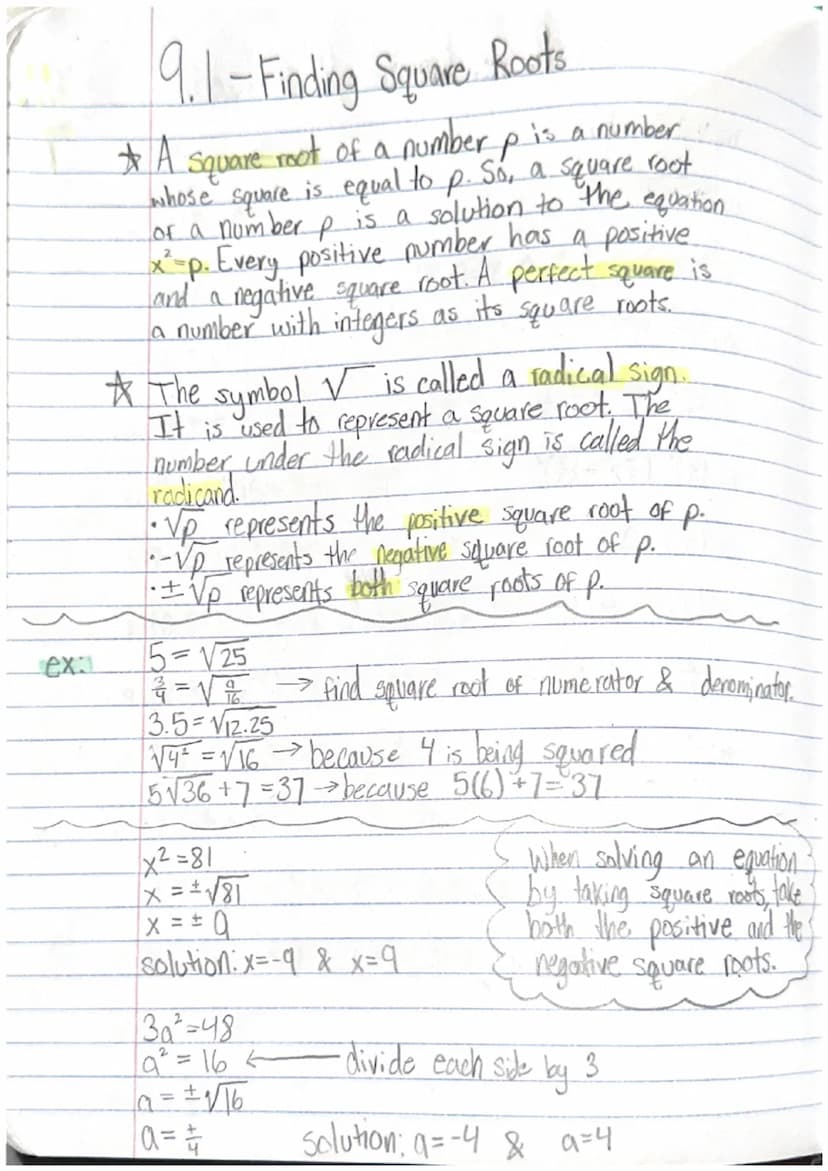 9.1 - Finding Square Roots
☆ A square root of a number p is a number
whose square is equal to p. So, a square root
of a number p is a solution to the equation
x²=p. Every positive number has a positive
and a negative square root. A perfect square is
a number with integers as its square roots.
☆ The symbol √ is called a radical sign.
It is used to represent a square root. The
number under the radical sign is called the
radicand.
· √p represents the positive square root of p.
· -√p represents the negative square root of p.
· ±√p represents both square roots of p.
ex: 5 = √25
3/4 = √9/16 → find square root of numerator & denominator.
3.5 = √12.25
√4² = √16 → because 4 is being squared
5√36 + 7 = 37 → because 5(6) + 7 = 37
x² = 81
x = ±√81
x = ± 9
solution: x=-9 & x=9
When solving an equation
by taking square roots, take
both the positive and the
negative square roots.
3a² = 48
a² = 16 ← divide each side by 3
a = ±√16
a = ±4 solution: a=-4 & a=4